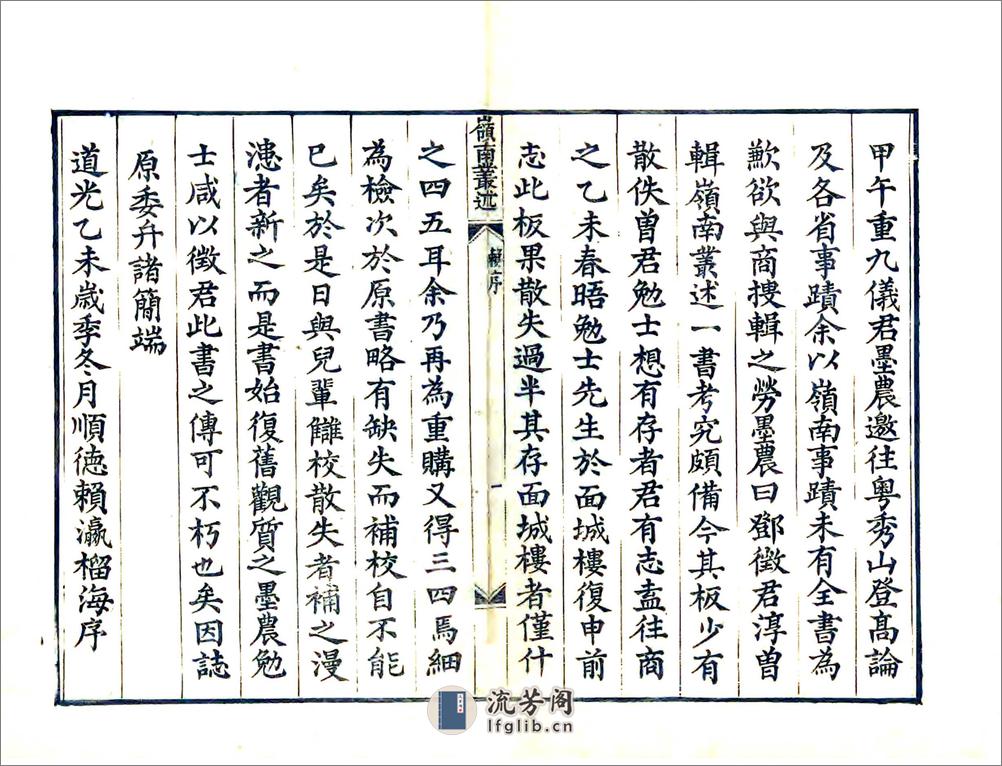 甲午重九儀君墨農邀往粵秀山登高論
及各省事蹟余以嶺南事蹟未有全書為
歉欲與商搜輯之勞墨農曰鄧徵君淳曾
輯嶺南叢述一書考究頗備今其板少有
散佚曾君勉士想有存者君有志盍往商
之乙未春晤勉士先生於面城樓復申前
志此板果散失過半其存面城樓者僅什
嶺南叢述
賴序
一
之四五耳余乃再為重購又得三四焉細
為檢次於原書略有缺失而補校自不能
已矣於是日與兒輩讎校散失者補之漫
漶者新之而是書始復舊觀質之墨農勉
士咸以徵君此書之傳可不朽也矣因誌
原委弁諸簡端
道光乙未歲季冬月順德賴瀛榴海序
流芳阁
lfglib.cn